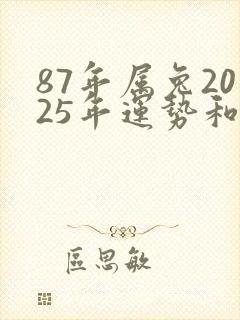 87年属兔20
25年運势和
區思敏